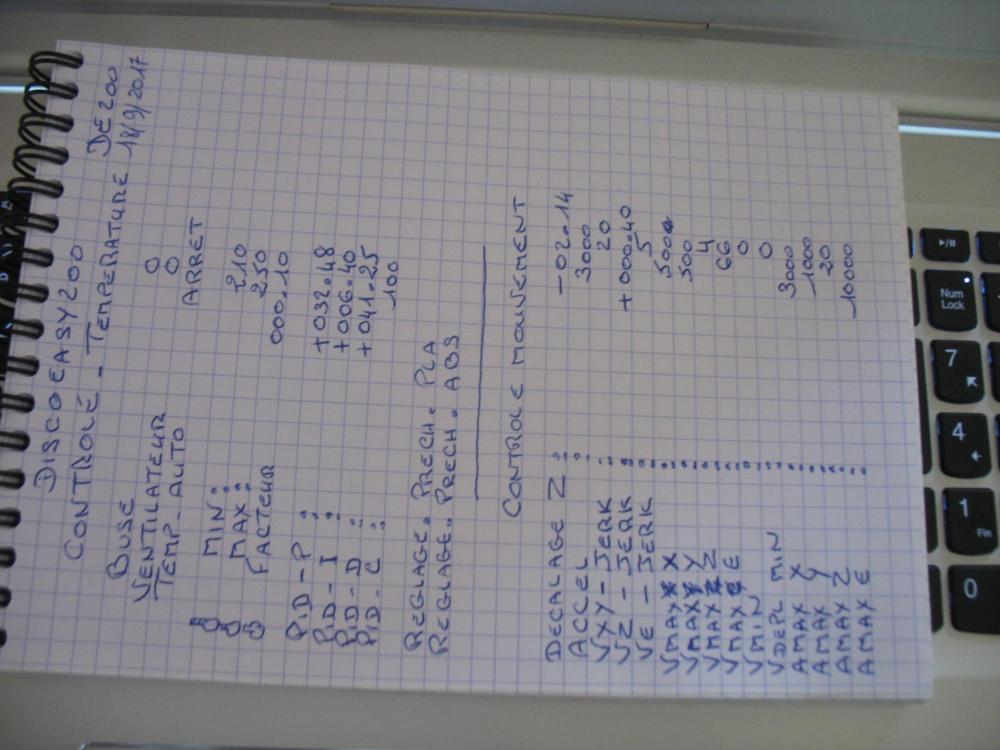 DISCOEASY200
CONTROLÉ - TEMPERATURE DE200
18/9/2017
BUSE 0
VENTILATEUR 0
TEMP_AUTO ARRET
MIN : 210
MAX : 250
FACTEUR 000.10
PID-P : +032.48
PID-I : +006.40
PID-D : +041.25
PID-C : 100
REGLAGE. PRECH. PLA
REGLAGE. PRECH. ABS
CONTROLE MOUVEMENT
DECALAGE Z : -02.14
ACCEL : 3000
VXY-JERK : 20
VZ-JERK : +000.40
VE-JERK : 5
VMAX X : 500
VMAX Y : 500
VMAX Z : 4
VMAX E : 66
VMIN : 0
VDEPL MIN : 0
AMAX X : 3000
AMAX Y : 1000
AMAX Z : 20
AMAX E : 10000
Num Lock
7
4
1
Fin
0